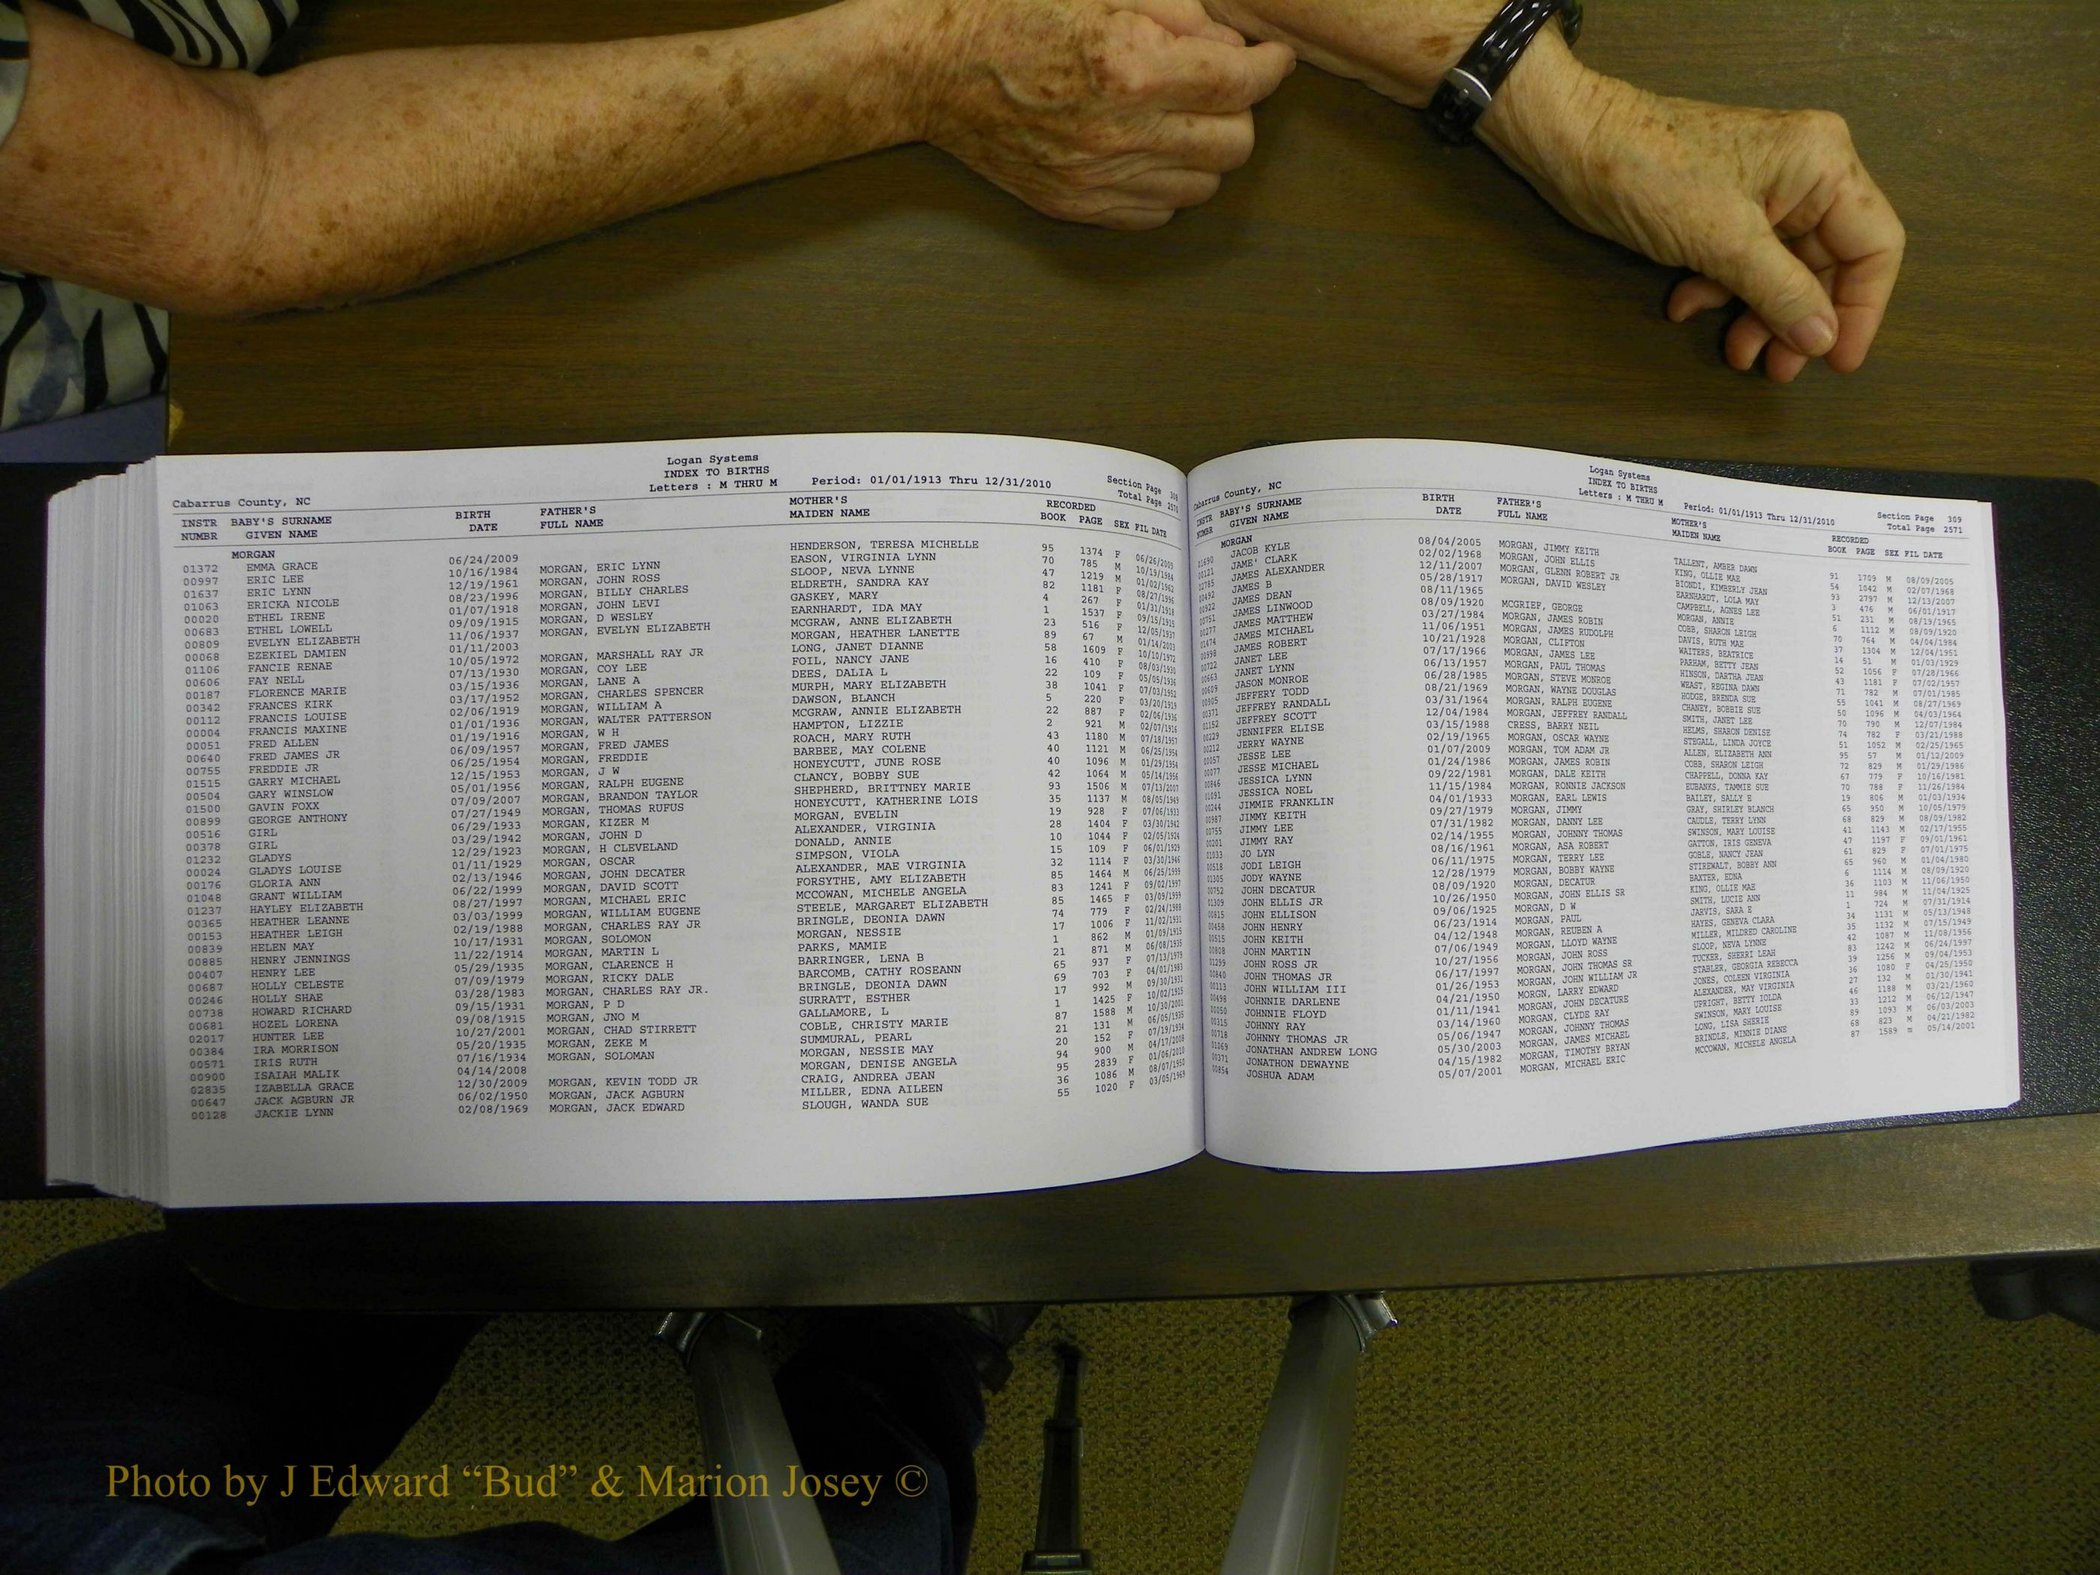 Logan Systems
INDEX TO BIRTHS
Letters : M THRU M
Period: 01/01/1913 Thru 12/31/2010
Section Page 308
Total Page 2571
Cabarrus County, NC
INSTR BABY'S SURNAME BIRTH FATHER'S MOTHER'S RECORDED
NUMBR GIVEN NAME DATE FULL NAME MAIDEN NAME BOOK PAGE SEX FIL DATE
MORGAN
01372 EMMA GRACE 06/24/2009 HENDERSON, TERESA MICHELLE 95 1374 F 06/26/2009
00997 ERIC LEE 10/16/1984 MORGAN, ERIC LYNN EASON, VIRGINIA LYNN 70 785 M 10/19/1984
01637 ERIC LYNN 12/19/1961 MORGAN, JOHN ROSS SLOOP, NEVA LYNNE 47 1219 M 01/02/1962
01063 ERICKA NICOLE 08/23/1996 MORGAN, BILLY CHARLES ELDRETH, SANDRA KAY 82 1181 F 08/27/1996
00020 ETHEL IRENE 01/07/1918 MORGAN, JOHN LEVI GASKEY, MARY 4 267 F 01/31/1918
00683 ETHEL LOWELL 09/09/1915 MORGAN, D WESLEY EARNHARDT, IDA MAY 1 1537 F 09/15/1915
00809 EVELYN ELIZABETH 11/06/1937 MORGAN, EVELYN ELIZABETH MCGRAW, ANNE ELIZABETH 23 516 F 12/05/1937
00068 EZEKIEL DAMIEN 01/11/2003 MORGAN, HEATHER LANETTE 89 67 M 01/14/2003
01106 FANCIE RENAE 10/05/1972 MORGAN, MARSHALL RAY JR LONG, JANET DIANNE 58 1609 F 10/10/1972
00606 FAY NELL 07/13/1930 MORGAN, COY LEE FOIL, NANCY JANE 16 410 F 08/03/1930
00187 FLORENCE MARIE 03/15/1936 MORGAN, LANE A DEES, DALIA L 22 109 F 05/05/1936
00342 FRANCES KIRK 03/17/1952 MORGAN, CHARLES SPENCER MURPH, MARY ELIZABETH 38 1041 F 07/03/1952
00112 FRANCIS LOUISE 02/06/1919 MORGAN, WILLIAM A DAWSON, BLANCH 5 220 F 03/20/1919
00004 FRANCIS MAXINE 01/01/1936 MORGAN, WALTER PATTERSON MCGRAW, ANNIE ELIZABETH 22 887 F 02/06/1936
00051 FRED ALLEN 01/19/1916 MORGAN, W H HAMPTON, LIZZIE 2 921 M 02/07/1916
00640 FRED JAMES JR 06/09/1957 MORGAN, FRED JAMES ROACH, MARY RUTH 43 1180 M 07/18/1957
00755 FREDDIE JR 06/25/1954 MORGAN, FREDDIE BARBEE, MAY COLENE 40 1121 M 06/25/1954
01515 GARRY MICHAEL 12/15/1953 MORGAN, J W HONEYCUTT, JUNE ROSE 40 1096 M 01/29/1954
00504 GARY WINSLOW 05/01/1956 MORGAN, RALPH EUGENE CLANCY, BOBBY SUE 42 1064 M 05/14/1956
01500 GAVIN FOXX 07/09/2007 MORGAN, BRANDON TAYLOR SHEPHERD, BRITTNEY MARIE 93 1506 M 07/13/2007
00899 GEORGE ANTHONY 07/27/1949 MORGAN, THOMAS RUFUS HONEYCUTT, KATHERINE LOIS 35 1137 M 08/05/1949
00516 GIRL 06/29/1933 MORGAN, KIZER M MORGAN, EVELIN 19 928 F 07/06/1933
00378 GIRL 03/29/1942 MORGAN, JOHN D ALEXANDER, VIRGINIA 28 1404 F 03/30/1942
01232 GLADYS 12/29/1923 MORGAN, H CLEVELAND DONALD, ANNIE 10 1044 F 02/05/1924
00024 GLADYS LOUISE 01/11/1929 MORGAN, OSCAR SIMPSON, VIOLA 15 109 F 06/01/1929
00176 GLORIA ANN 02/13/1946 MORGAN, JOHN DECATER ALEXANDER, MAE VIRGINIA 32 1114 F 03/30/1946
01048 GRANT WILLIAM 06/22/1999 MORGAN, DAVID SCOTT FORSYTHE, AMY ELIZABETH 85 1464 M 06/25/1999
01237 HAYLEY ELIZABETH 08/27/1997 MORGAN, MICHAEL ERIC MCCOWAN, MICHELE ANGELA 83 1241 F 09/02/1997
00365 HEATHER LEANNE 03/03/1999 MORGAN, WILLIAM EUGENE STEELE, MARGARET ELIZABETH 85 1465 F 03/09/1999
00153 HEATHER LEIGH 02/19/1988 MORGAN, CHARLES RAY JR BRINGLE, DEONIA DAWN 74 779 F 02/24/1988
00839 HELEN MAY 10/17/1931 MORGAN, SOLOMON MORGAN, NESSIE 17 1006 F 11/02/1931
00885 HENRY JENNINGS 11/22/1914 MORGAN, MARTIN L PARKS, MAMIE 1 862 M 01/09/1915
00407 HENRY LEE 05/29/1935 MORGAN, CLARENCE H BARRINGER, LENA B 21 871 M 06/08/1935
00687 HOLLY CELESTE 07/09/1979 MORGAN, RICKY DALE BARCOMB, CATHY ROSEANN 65 937 F 07/13/1979
00246 HOLLY SHAE 03/28/1983 MORGAN, CHARLES RAY JR. BRINGLE, DEONIA DAWN 69 703 F 04/01/1983
00738 HOWARD RICHARD 09/15/1931 MORGAN, P D SURRATT, ESTHER 17 992 M 09/30/1931
00681 HOZEL LORENA 09/08/1915 MORGAN, JNO M GALLAMORE, L 1 1425 F 10/02/1915
02017 HUNTER LEE 10/27/2001 MORGAN, CHAD STIRRETT COBLE, CHRISTY MARIE 87 1588 M 10/30/2001
00384 IRA MORRISON 05/20/1935 MORGAN, ZEKE M SUMMURAL, PEARL 21 131 M 06/05/1935
00571 IRIS RUTH 07/16/1934 MORGAN, SOLOMAN MORGAN, NESSIE MAY 20 152 F 07/19/1934
00900 ISAIAH MALIK 04/14/2008 MORGAN, DENISE ANGELA 94 900 M 04/17/2008
02835 IZABELLA GRACE 12/30/2009 MORGAN, KEVIN TODD JR CRAIG, ANDREA JEAN 95 2839 F 01/06/2010
00647 JACK AGBURN JR 06/02/1950 MORGAN, JACK AGBURN MILLER, EDNA AILEEN 36 1086 M 08/07/1950
00128 JACKIE LYNN 02/08/1969 MORGAN, JACK EDWARD SLOUGH, WANDA SUE 55 1020 F 03/05/1969
Logan Systems
INDEX TO BIRTHS
Letters : M THRU M
Period: 01/01/1913 Thru 12/31/2010
Section Page 309
Total Page 2571
Cabarrus County, NC
INSTR BABY'S SURNAME BIRTH FATHER'S MOTHER'S RECORDED
NUMBR GIVEN NAME DATE FULL NAME MAIDEN NAME BOOK PAGE SEX FIL DATE
MORGAN
01690 JACOB KYLE 08/04/2005 MORGAN, JIMMY KEITH TALLENT, AMBER DAWN 91 1709 M 08/09/2005
00121 JAME' CLARK 02/02/1968 MORGAN, JOHN ELLIS KING, OLLIE MAE 54 1042 M 02/07/1968
02785 JAMES ALEXANDER 12/11/2007 MORGAN, GLENN ROBERT JR BIONDI, KIMBERLY JEAN 93 2797 M 12/13/2007
00492 JAMES B 05/28/1917 MORGAN, DAVID WESLEY EARNHARDT, LOLA MAY 3 476 M 06/01/1917
00922 JAMES DEAN 08/11/1965 CAMPBELL, AGNES LEE 51 231 M 08/19/1965
00751 JAMES LINWOOD 08/09/1920 MCGRIEF, GEORGE MORGAN, ANNIE 6 1112 M 08/09/1920
00277 JAMES MATTHEW 03/27/1984 MORGAN, JAMES ROBIN COBB, SHARON LEIGH 70 764 M 04/04/1984
01474 JAMES MICHAEL 11/06/1951 MORGAN, JAMES RUDOLPH DAVIS, RUTH MAE 37 1304 M 12/04/1951
00998 JAMES ROBERT 10/21/1928 MORGAN, CLIFTON WAITERS, BEATRICE 14 51 M 01/03/1929
00722 JANET LEE 07/17/1966 MORGAN, JAMES LEE PARHAM, BETTY JEAN 52 1056 F 07/28/1966
00663 JANET LYNN 06/13/1957 MORGAN, PAUL THOMAS HINSON, DARTHA JEAN 43 1181 F 07/02/1957
00609 JASON MONROE 06/28/1985 MORGAN, STEVE MONROE WEAST, REGINA DAWN 71 782 M 07/01/1985
00905 JEFFERY TODD 08/21/1969 MORGAN, WAYNE DOUGLAS HODGE, BRENDA SUE 55 1041 M 08/27/1969
00371 JEFFREY RANDALL 03/31/1964 MORGAN, RALPH EUGENE CHANEY, BOBBIE SUE 50 1096 M 04/03/1964
01152 JEFFREY SCOTT 12/04/1984 MORGAN, JEFFREY RANDALL SMITH, JANET LEE 70 790 M 12/07/1984
00229 JENNIFER ELISE 03/15/1988 CRESS, BARRY NEIL HELMS, SHARON DENISE 74 782 F 03/21/1988
00212 JERRY WAYNE 02/19/1965 MORGAN, OSCAR WAYNE STEGALL, LINDA JOYCE 51 1052 M 02/25/1965
00057 JESSE LEE 01/07/2009 MORGAN, TOM ADAM JR ALLEN, ELIZABETH ANN 95 57 M 01/12/2009
00077 JESSE MICHAEL 01/24/1986 MORGAN, JAMES ROBIN COBB, SHARON LEIGH 72 829 M 01/29/1986
00846 JESSICA LYNN 09/22/1981 MORGAN, DALE KEITH CHAPPELL, DONNA KAY 67 779 F 10/16/1981
01091 JESSICA NOEL 11/15/1984 MORGAN, RONNIE JACKSON EUBANKS, TAMMIE SUE 70 788 F 11/26/1984
00244 JIMMIE FRANKLIN 04/01/1933 MORGAN, EARL LEWIS BAILEY, SALLY E 19 806 M 01/03/1934
00987 JIMMY KEITH 09/27/1979 MORGAN, JIMMY GRAY, SHIRLEY BLANCH 65 950 M 10/05/1979
00755 JIMMY LEE 07/31/1982 MORGAN, DANNY LEE CAUDLE, TERRY LYNN 68 829 M 08/09/1982
00201 JIMMY RAY 02/14/1955 MORGAN, JOHNNY THOMAS SWINSON, MARY LOUISE 41 1143 M 02/17/1955
01033 JO LYN 08/16/1961 MORGAN, ASA ROBERT GATTON, IRIS GENEVA 47 1197 F 09/01/1961
00518 JODI LEIGH 06/11/1975 MORGAN, TERRY LEE GOBLE, NANCY JEAN 61 829 F 07/01/1975
01305 JODY WAYNE 12/28/1979 MORGAN, BOBBY WAYNE STIREWALT, BOBBY ANN 65 960 M 01/04/1980
00752 JOHN DECATUR 08/09/1920 MORGAN, DECATUR BAXTER, EDNA 6 1114 M 08/09/1920
01309 JOHN ELLIS JR 10/26/1950 MORGAN, JOHN ELLIS SR KING, OLLIE MAE 36 1103 M 11/06/1950
00815 JOHN ELLISON 09/06/1925 MORGAN, D W SMITH, LUCIE ANN 11 984 M 11/04/1925
00458 JOHN HENRY 06/23/1914 MORGAN, PAUL JARVIS, SARA E 1 724 M 07/31/1914
00515 JOHN KEITH 04/12/1948 MORGAN, REUBEN A HAYES, GENEVA CLARA 34 1131 M 05/13/1948
00808 JOHN MARTIN 07/06/1949 MORGAN, LLOYD WAYNE MILLER, MILDRED CAROLINE 35 1132 M 07/15/1949
01299 JOHN ROSS JR 10/27/1956 MORGAN, JOHN ROSS SLOOP, NEVA LYNNE 42 1087 M 11/08/1956
00840 JOHN THOMAS JR 06/17/1997 MORGAN, JOHN THOMAS SR TUCKER, SHERRI LEAH 83 1242 M 06/24/1997
00113 JOHN WILLIAM III 01/26/1953 MORGAN, JOHN WILLIAM JR STABLER, GEORGIA REBECCA 39 1256 M 09/04/1953
00498 JOHNNIE DARLENE 04/21/1950 MORGN, LARRY EDWARD JONES, COLEEN VIRGINIA 36 1080 F 04/25/1950
00050 JOHNNIE FLOYD 01/11/1941 MORGAN, JOHN DECATURE ALEXANDER, MAY VIRGINIA 27 132 M 01/30/1941
00315 JOHNNY RAY 03/14/1960 MORGAN, CLYDE RAY UPRIGHT, BETTY IOLDA 46 1188 M 03/21/1960
00718 JOHNNY THOMAS JR 05/06/1947 MORGAN, JOHNNY THOMAS SWINSON, MARY LOUISE 33 1212 M 06/12/1947
01069 JONATHAN ANDREW LONG 05/30/2003 MORGAN, JAMES MICHAEL LONG, LISA SHERIE 89 1093 M 06/03/2003
00371 JONATHON DEWAYNE 04/15/1982 MORGAN, TIMOTHY BRYAN BRINDLE, MINNIE DIANE 68 823 M 04/21/1982
00854 JOSHUA ADAM 05/07/2001 MORGAN, MICHAEL ERIC MCCOWAN, MICHELE ANGELA 87 1589 m 05/14/2001
Photo by J Edward “Bud” & Marion Josey ©